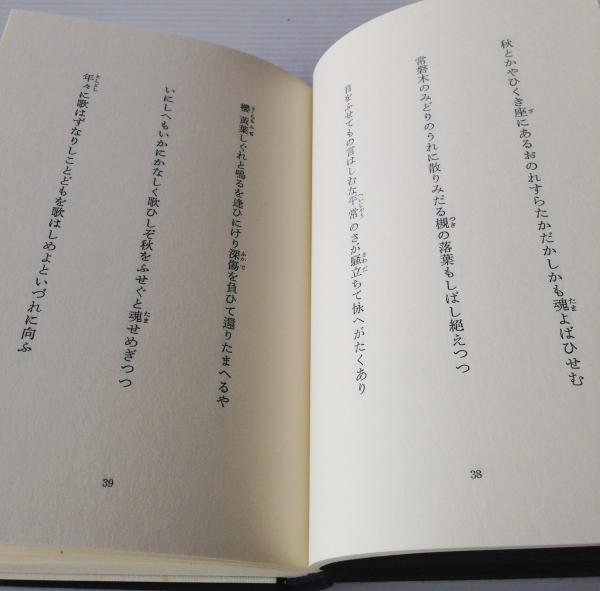 秋とかやひくき座にあるおのれすらたかだかしかも魂よばひせむ
常磐木のみどりのうれに散りみだる槻の落葉もしばし絶えつつ
目をふせてもの言はしむな平常のさが騒立ちて怺へがたくあり
38
櫻黄葉しぐれと鳴るを逢ひにけり深傷を負ひて還りたまへるや
いにしへもいかにかなしく歌ひしぞ秋をふせぐと魂せめぎつつ
年々に歌はずなりしことどもを歌はしめよといづれに向ふ
39